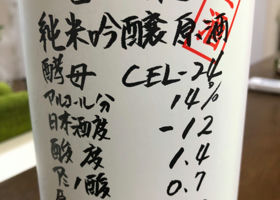 純米吟醸原酒
酵母 CEL-24
アルコール分 14%
日本酒度 -12
酸度 1.4
アミノ酸 0.7